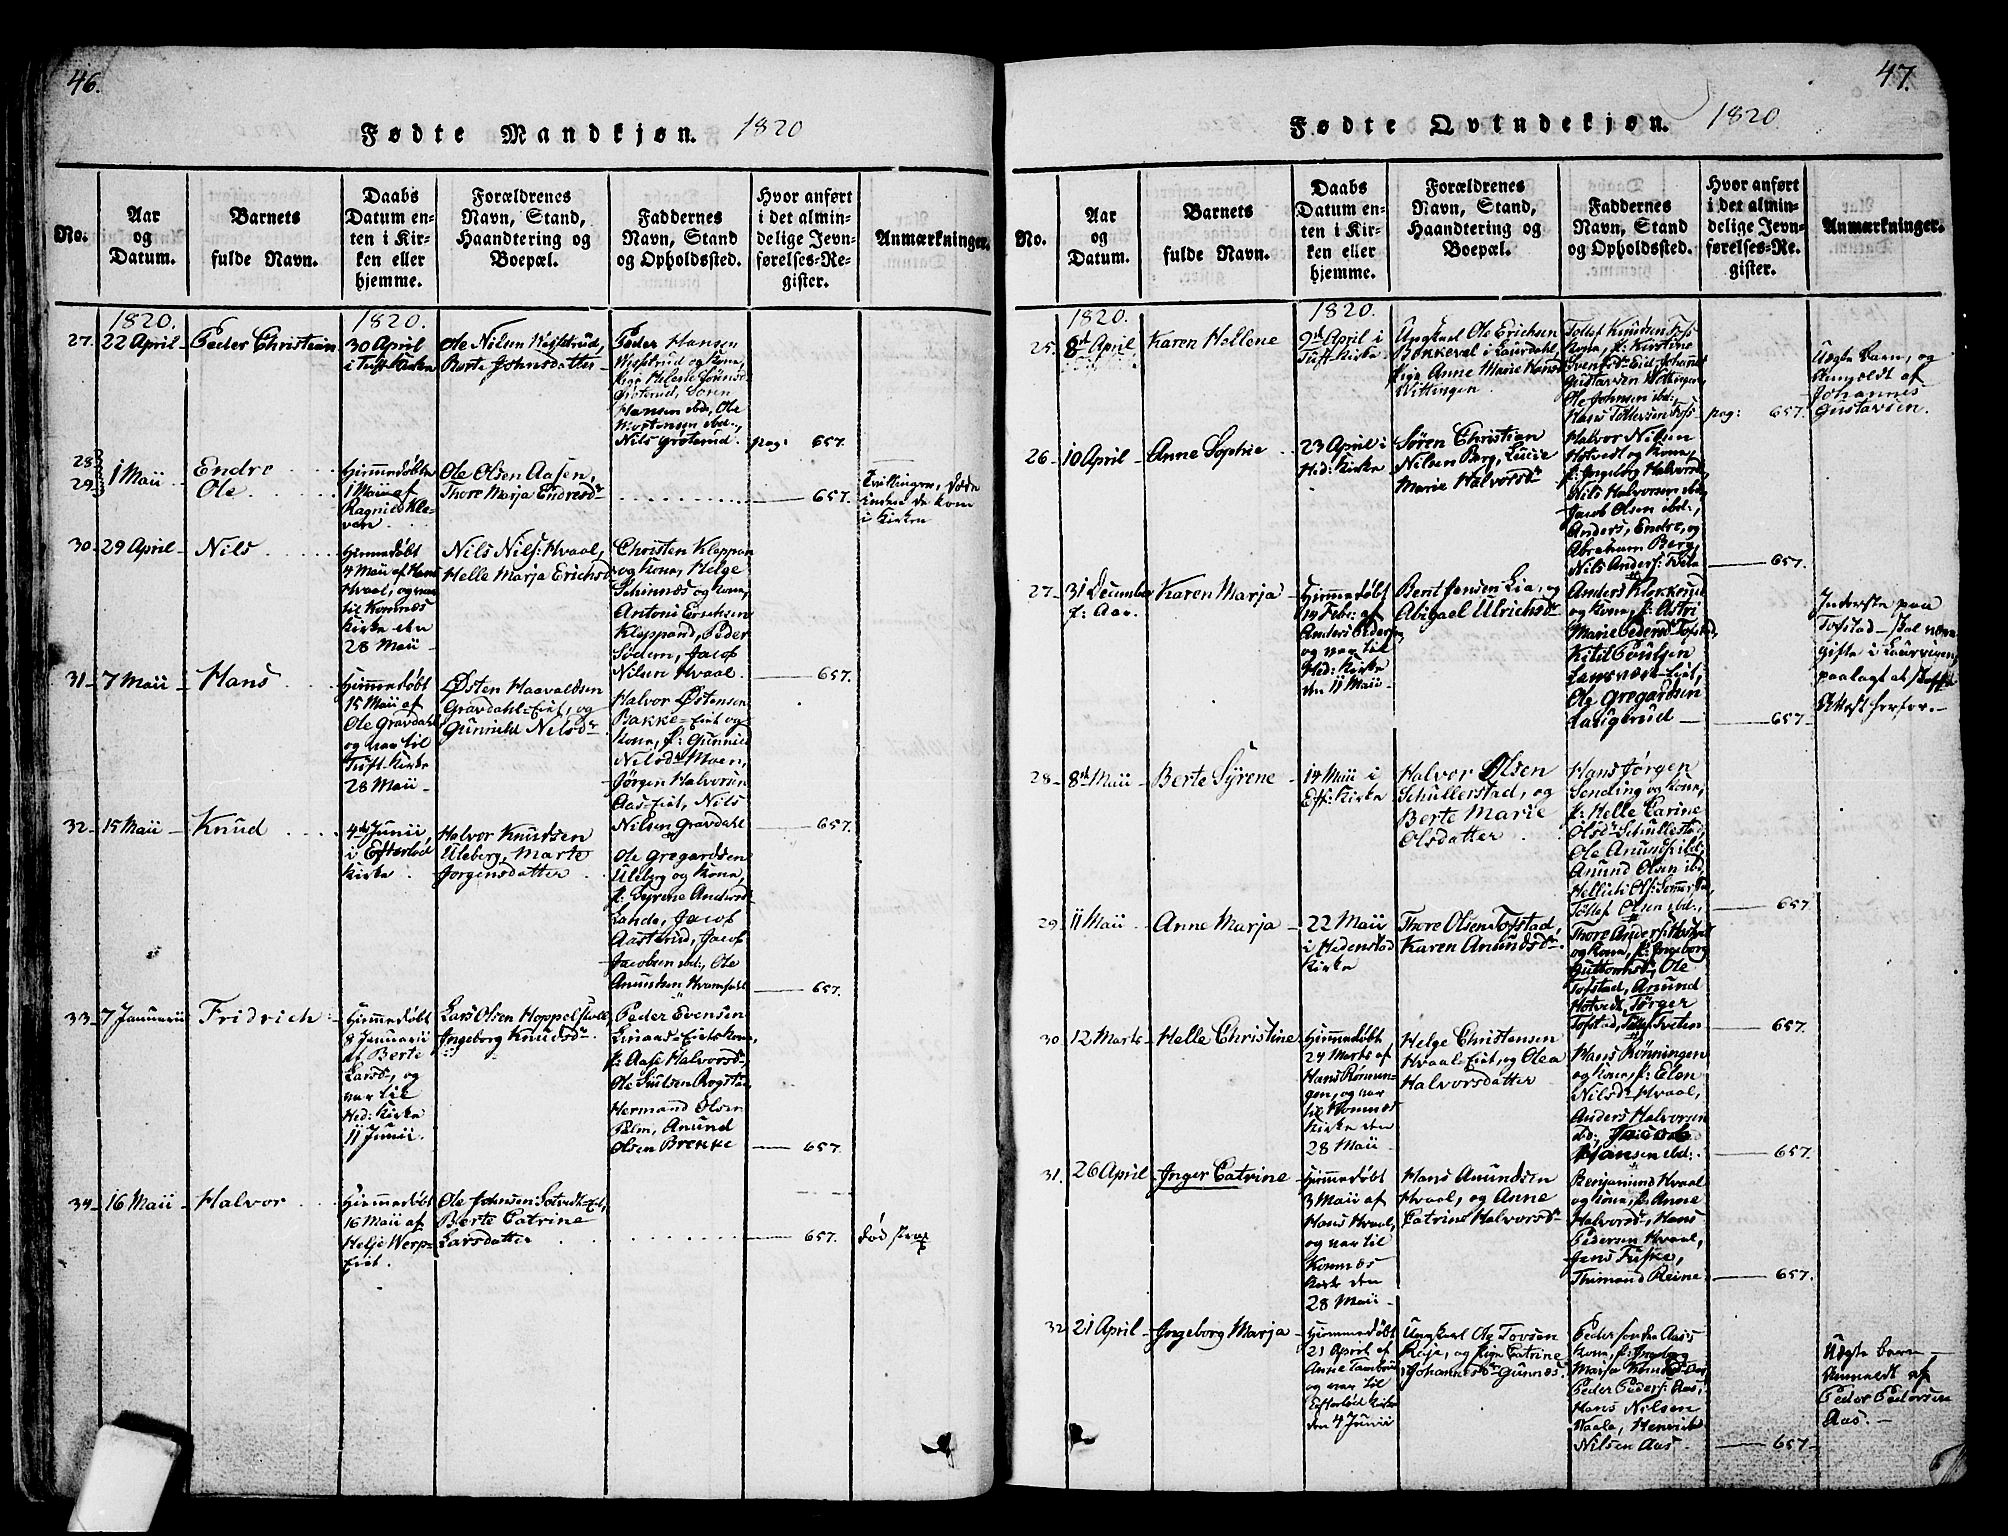 46.
Fødte Mandkjøn. 1820
No.
Aar
og
Datum.
Barnets
fulde Navn.
Daabs
Datum en-
ten i Kir-
ken eller
hjemme.
Forældrenes
Navn, Stand,
Haandtering og
Boepæl.
Faddernes
Navn, Stand
og Opholdssted.
Hvor anført
i det almin-
delige Jevn-
førelses-Re-
gister.
Anmærkninger.
1820.
1820.
27.
22 April
Peder Christian
30 April
i Tuft Kirke
Ole Nilsen
Berte Johnsdatter
Peder Hansen
og Kone,
Pige Helene
Grøterud, Søren
Hansen ibd, Ole
Mortensen ibd.,
Nils Grøterud.
pag: 657.
28
29
1 Maii
Endre
Ole
Hiemmedøbte
1 Maii af
Ragnild Kle-
ven
Ole Olsen Aasen,
Thore Marja Endresdr
657.
Tvillinger, døde
inden de kom
i Kirken
30
29 April
Nils
Hiemmedøbt
4 Maii af Hans
Hvaal, og var
til Komnæs
Kirke den
28 Maii
Nils Nils: Hvaal,
Helle Marja Erichsd
Christen Kloppan
og Kone, Helge
Skinnæs og Kone,
Antoni Erichsen
Kloppand, Peder
Sødem, Jacob
Nilsen Hvaal.
657.
31
7 Maii
Hans
Hiemmedøbt
15 Maii af
Ole Gravdahl
og var til
Tuft-Kirke
28 Maii
Østen Haavaldsen
Gravdahl-Eiet, og
Gunnild Nilsdr
Halvor Østensen
Bakke-Eiet og
Kone, p: Gunnild
Nilsdr Moen,
Jørgen Halvorsen
Aas-Eiet, Nils
Nilsen Gravdahl
657.
32
15 Maii
Knud
4de Junii
i Efterlød
Kirke
Halvor Knudsen
Uleberg, Marte
Jørgensdatter
Ole Gregardsen
Uleberg og Kone,
p: Syrene Andersd
Lande, Jacob
Aasterud, Jacob
Jacobsen ibd:, Ole
Anundsen
657.
33
7 Januarii
Fridrich
Hiemmedøbt
8 Januarii
af Berte
Larsdr, og
var til
Hed: Kirke
11 Junii.
Lars Olsen Hoppelstull
Ingeborg Knudsdr
Peder Evensen
Linaas-Eiet & Kone,
p: Aase Halvorsd
Ole Rogstad
Hermand Olsen
Palm, Anund
Olsen Brekke
657.
34
16 Maii
Halvor
Hiemmedøbt
16 Maii af
Helje Werp-
Eiet.
Ole Johnsen
Berte Catrine
Larsdatter
657.
død strax
47.
Fødte Qvindekjøn. 1820
No.
Aar
og
Datum.
Barnets
fulde Navn.
Daabs
Datum en-
ten i Kir-
ken eller
hjemme.
Forældrenes
Navn, Stand,
Haandtering og
Boepæl.
Faddernes
Navn, Stand
og Opholdssted.
Hvor anført
i det almin-
delige Jevn-
førelses-Re-
gister.
Anmærkninger.
1820.
1820.
25.
8de April
Karen Hellene
9de April i
Tuft-Kirke
Ungkarl Ole Erichsen
Bekkeval i Laurdahl,
Pige Anne Marie Hansd
Wittingen
Tollef Knudsen
Kone, p: Kirstine
Svendsdr Eiet, Johannes
Gustavsen Wittingen,
Ole Johnsen ibd:,
Hans Tollefsen
pag: 657.
Uægte Barn, og
Anmeldt af
Johannes
Gustavsen.
26.
10 April
Anne Sophie
23 April i
Hed: Kirke
Søren Christian
Nilsen Berg, Lucie
Marie Halvorsdr
Halvor Nilsen
Hotvedt og Kone,
p: Ingeborg Halvorsd
Nils Halvorsen ibd,
Jacob Olsen ibd:,
Anders, Endre, og
Abraham Berg,
Nils Anders:
657.
27
31 December
f: Aar.
Karen Marja
Hiemmedøbt
14 Febr: af
Anders Peders:
og var til
Hed: Kirke
den 11 Maii
Bent Jensen Lia, og
Abigael Ulrichsdr
Anders Klokkerud
og Kone, p: Astri
Marie Pedersd Tofstad,
Kitil Poulsen
Lamsnæs-Eiet,
Ole Gregardsen
Laugerud
657.
Inderste paa
Tofstad skal være
Gifte i Laurvigen,
paalagt at skaffe
Attest herfor.
28
8de Maii
Berte Syrene
14 Maii i
Eft: Kirke
Halvor Olsen
Schullerstad, og
Berte Marie
Olsdatter
Hans Jørgen
Sending og Kone,
p: Helle Carine
Olsdr Schullestad,
Ole Anunds: ibd:
Anund Olsen ibd.
Tollef Olsen ibd.,
657.
29
11 Maii
Anne Marja
22 Maii
i Hedenstad
Kirke
Thore Olsen Tofstad,
Karen Anundsdr
Thore Anders: Hotvet
og Kone, p: Ingeborg
Guttormsd, Ole
Tofstad, Anund
Hotvedt, Tørger
Tofstad, Tollef Tveten
657.
30
12 Marts
Helle Christine
Hiemmedøbt
24 Marts af
Hans Rønnin-
gen, og var
til Komnæs
Kirke den
28 Maii
Helge Christensen
Hvaals Eiet, og Olea
Halvorsdatter
Hans Rønningen
og Kone, p: Elen
Nilsdr Hvaal,
Anders Halvorsen
ibd:, Jacob
Hansen ibd:
657.
31.
26 April
Inger Catrine
Hiemmedøbt
3 Maii af
Hans Hvaal,
og var til
Komnæs
Kirke den
28 Maii
Hans Anundsen
Hvaal, og Anne
Catrine Halvorsd
Benjamund Hvaal
og Kone, p: Anne
Halvorsd, Hans
Pedersen Hvaal,
Jens Tufske,
Thimand Reine
657.
32
21 April
Ingeborg Marja
Hiemmedøbt
21 April af
Anne Tambour
og var til
Efterløds Kirke
den 4 Junii
Ungkarl Ole Tovsen
Reja, og Pige Catrine
Johannesdr Gunnes
Peder Aas
Kone, p: Ingeborg
Marja
Peder Peders: Aas,
Hans Nilsen
Waale, Henrich
Nilsen Aas
657
Uægte barn
Anmeldt af
Peder Pedersen
Aas.